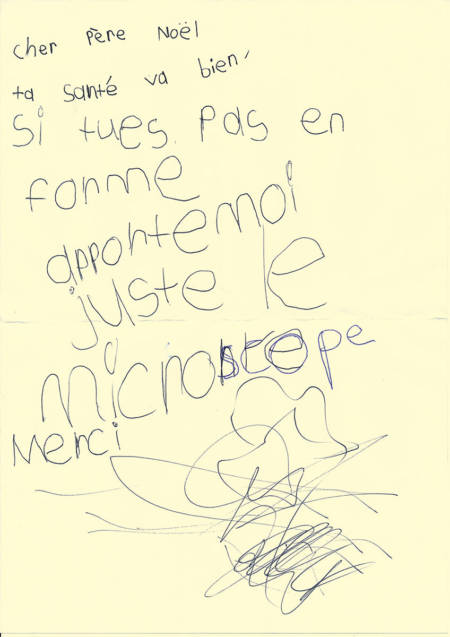 cher Père Noël
ta santé va bien
si tues pas en
forme
apportemoi
juste le
microscope
Merci